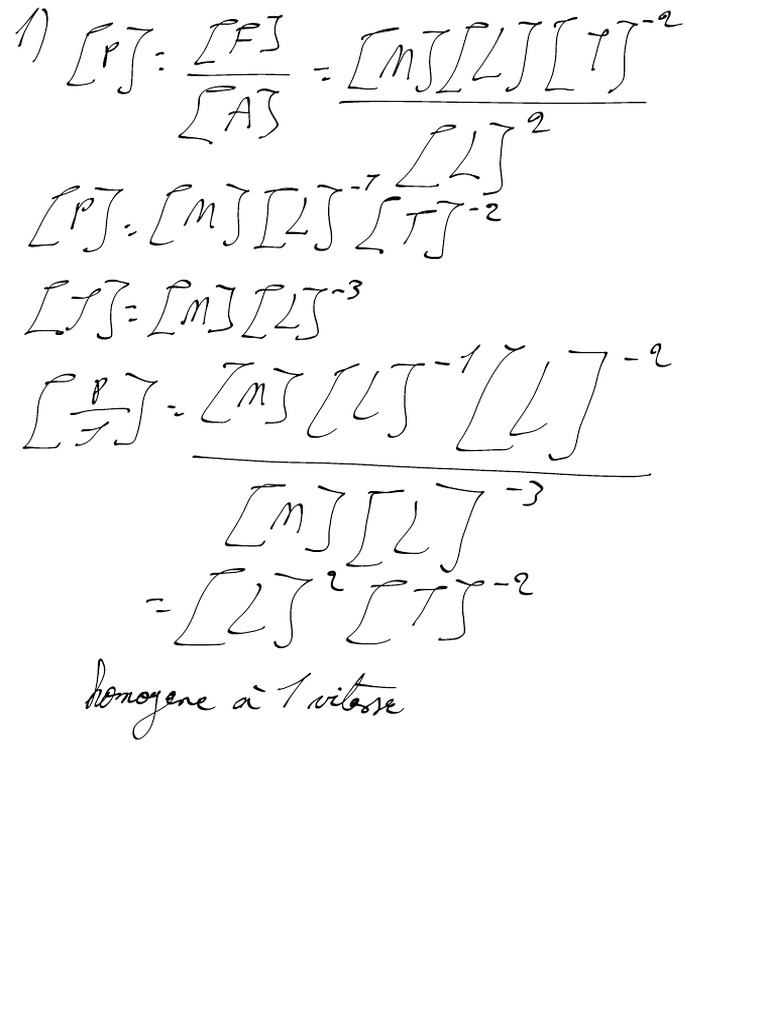 1) [P] = [F] / [A] = [M][L][T]^-2 / [L]^2
[P] = [M][L]^-1 [T]^-2
[J] = [M][L]^-3
[P/J] = [M][L]^-1 [L]^-2 / [M][L]^-3
= [L]^2 [T]^-2
homogene à 1 vitesse